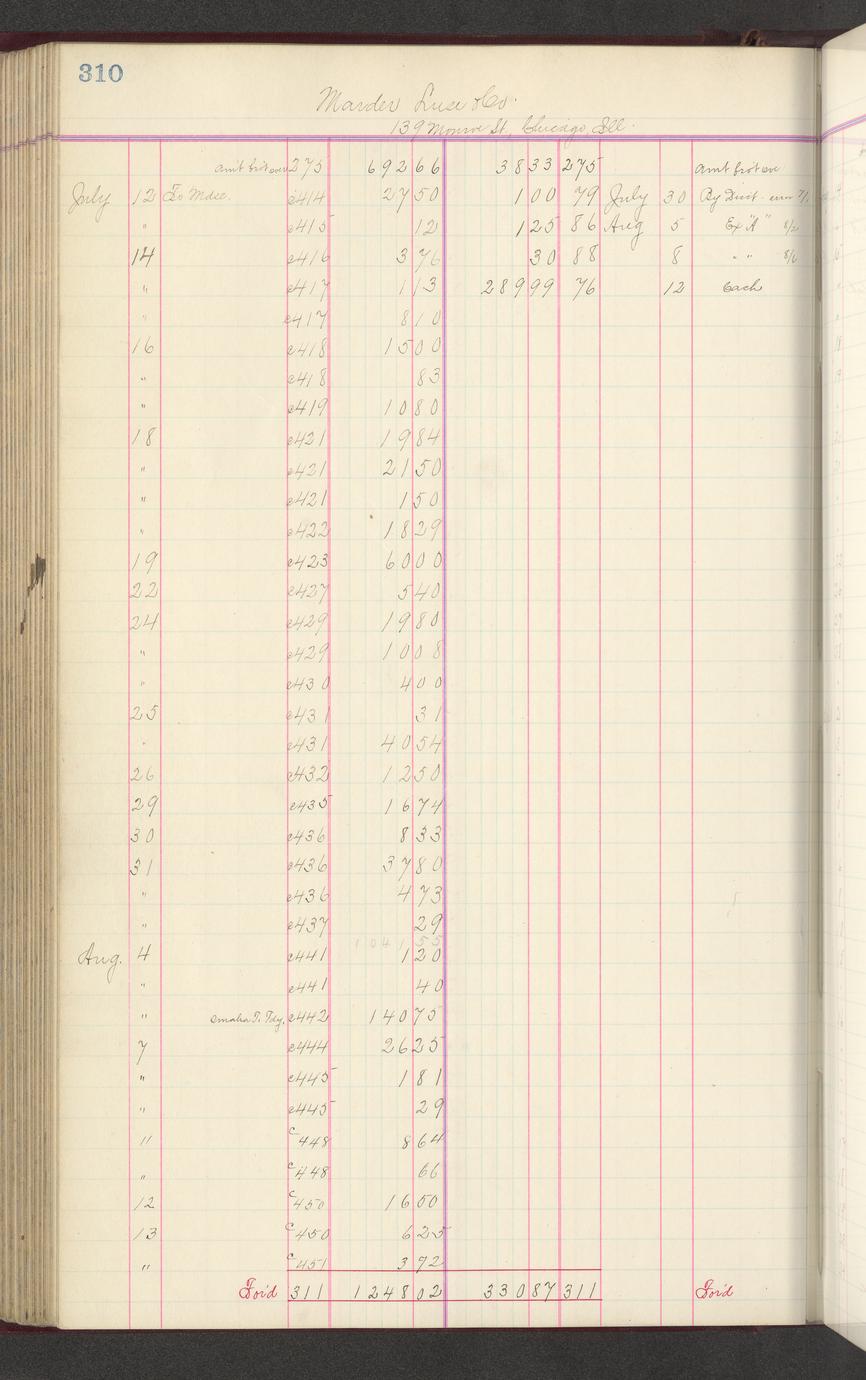 310
Marder Luse & Co.
139 Monroe St, Chicago, Ill.
amt brot over 275 692 66 38 33 275 amt brot over
July 12 To Mdse. c414 27 50 1 00 79 July 30 By Disct. error
" c415 12 1 25 86 Aug 5 Ex "A" 8/2
14 c416 3 76 30 88 8 " " 8/6
" c417 1 13 289 99 76 12 Cash
" c417 8 10
16 c418 15 00
" c418 83
" c419 10 80
18 c421 19 84
" c421 21 50
" c421 1 50
" c422 18 29
19 c423 60 00
22 c427 5 40
24 c429 19 80
" c429 10 08
" c430 4 00
25 c431 31
" c431 40 54
26 c432 12 50
29 c435 16 74
30 c436 8 33
31 c436 37 80
" c436 4 73
" c437 29
1041 55
Aug. 4 c441 1 20
" c441 40
" Omaha T. Fdy. c442 140 75
7 c444 26 25
" c445 1 81
" c445 29
" c448 8 64
" c448 66
12 c450 16 00
13 c450 6 25
" c451 3 92
For'd 311 1248 02 330 87 311 For'd